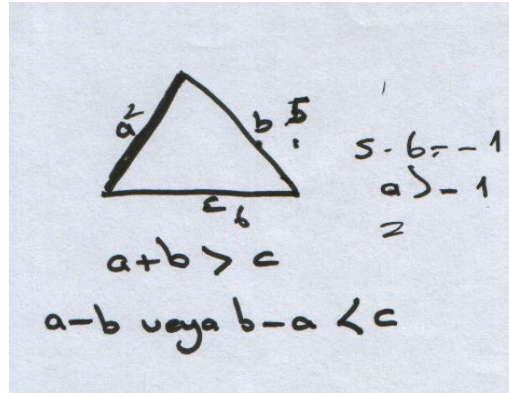 a 2
b 5
c 6
5 - 6 = - 1
a > - 1
2
a + b > c
a - b veya b - a < c